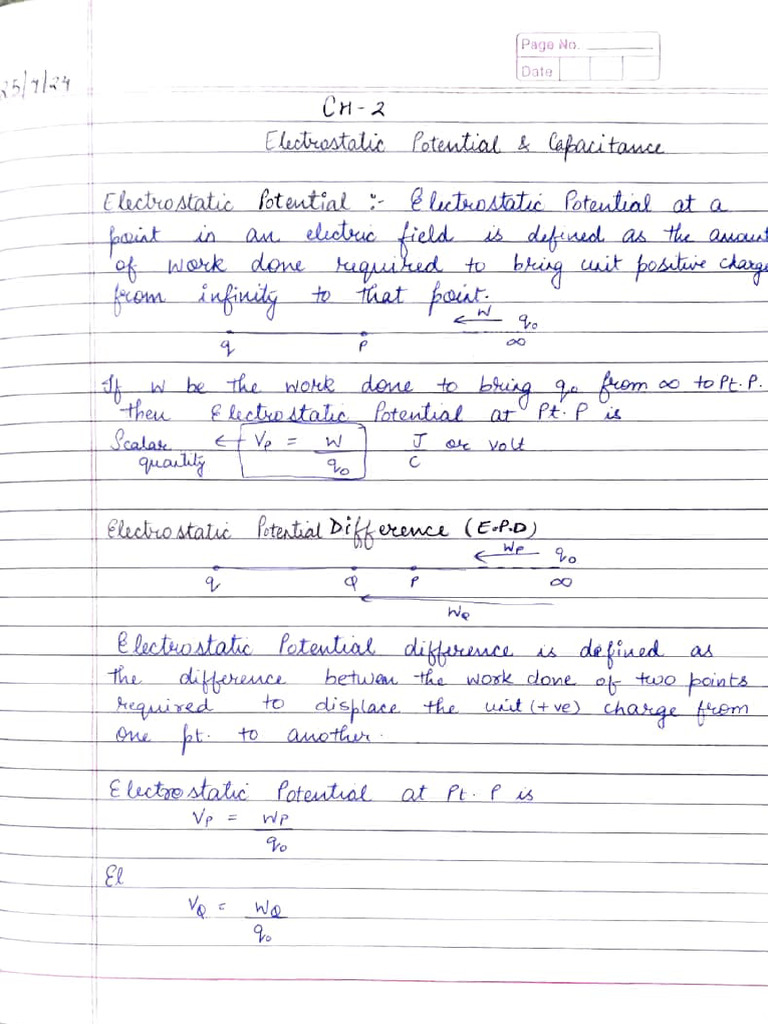 Page No.
Date
25/7/24
CH-2
Electrostatic Potential & Capacitance
Electrostatic Potential :- Electrostatic Potential at a
point in an electric field is defined as the amount
of work done required to bring unit positive charge
from infinity to that point.
W q₀
q P ∞
If W be the work done to bring q₀ from ∞ to Pt. P.
then Electrostatic Potential at Pt. P is
Scalar quantity ← V_P = W/q₀ J/C or volt
Electrostatic Potential Difference (E.P.D)
W_P q₀
q Q P ∞
W_Q
Electrostatic Potential difference is defined as
the difference between the work done of two points
required to displace the unit (+ve) charge from
one pt. to another.
Electrostatic Potential at Pt. P is
V_P = W_P/q₀
El
V_Q = W_Q/q₀